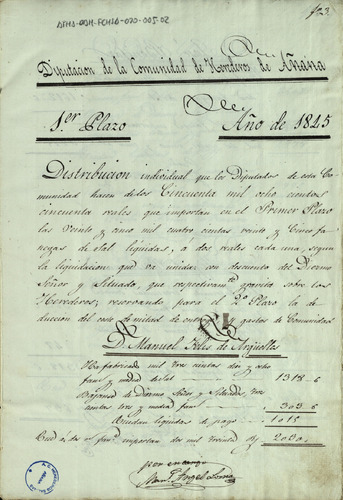 AFHA-DAH-FCHA-070-005-02
f23
Diputacion de la Comunidad de Herederos de Añana
1.er Plazo
Año de 1845
Distribucion individual que los Diputados de esta Co-
munidad hacen de los Cincuenta mil ocho cientos
cincuenta reales que importan en el Primer Plazo
las Veinte y cinco mil cuatro cientas veinte y Cinco fa-
negas de Sal liquidas, á dos reales cada una, segun
la liquidacion que va unida con descuento del Diezmo
Señor y Situado, que respectivam.te gravita sobre los
Herederos; reservando para el 2.o Plazo la de-
duccion del coste gastos de Comunidad
D. Manuel Feliz de Argüelles
Ha fabricado mil tres cientas diez y ocho
fan.s y media de Sal 1318-6
Bajanse de Diezmo Señor y Situados, tres
cientas tres y media fan.s 303-6
Quedan liquidas de pago 1015
Que á dos r.s fan.a importan dos mil treinta R.s 2030
por encargo
Man.l Angel